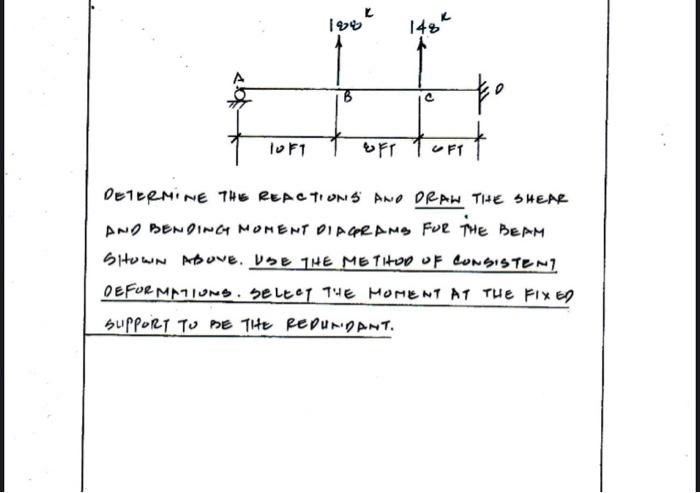 188ᴷ 148ᴷ
A B C D
10 FT 8 FT 6 FT
DETERMINE THE REACTIONS AND DRAW THE SHEAR
AND BENDING MOMENT DIAGRAMS FOR THE BEAM
SHOWN ABOVE. USE THE METHOD OF CONSISTENT
DEFORMATIONS. SELECT THE MOMENT AT THE FIXED
SUPPORT TO BE THE REDUNDANT.